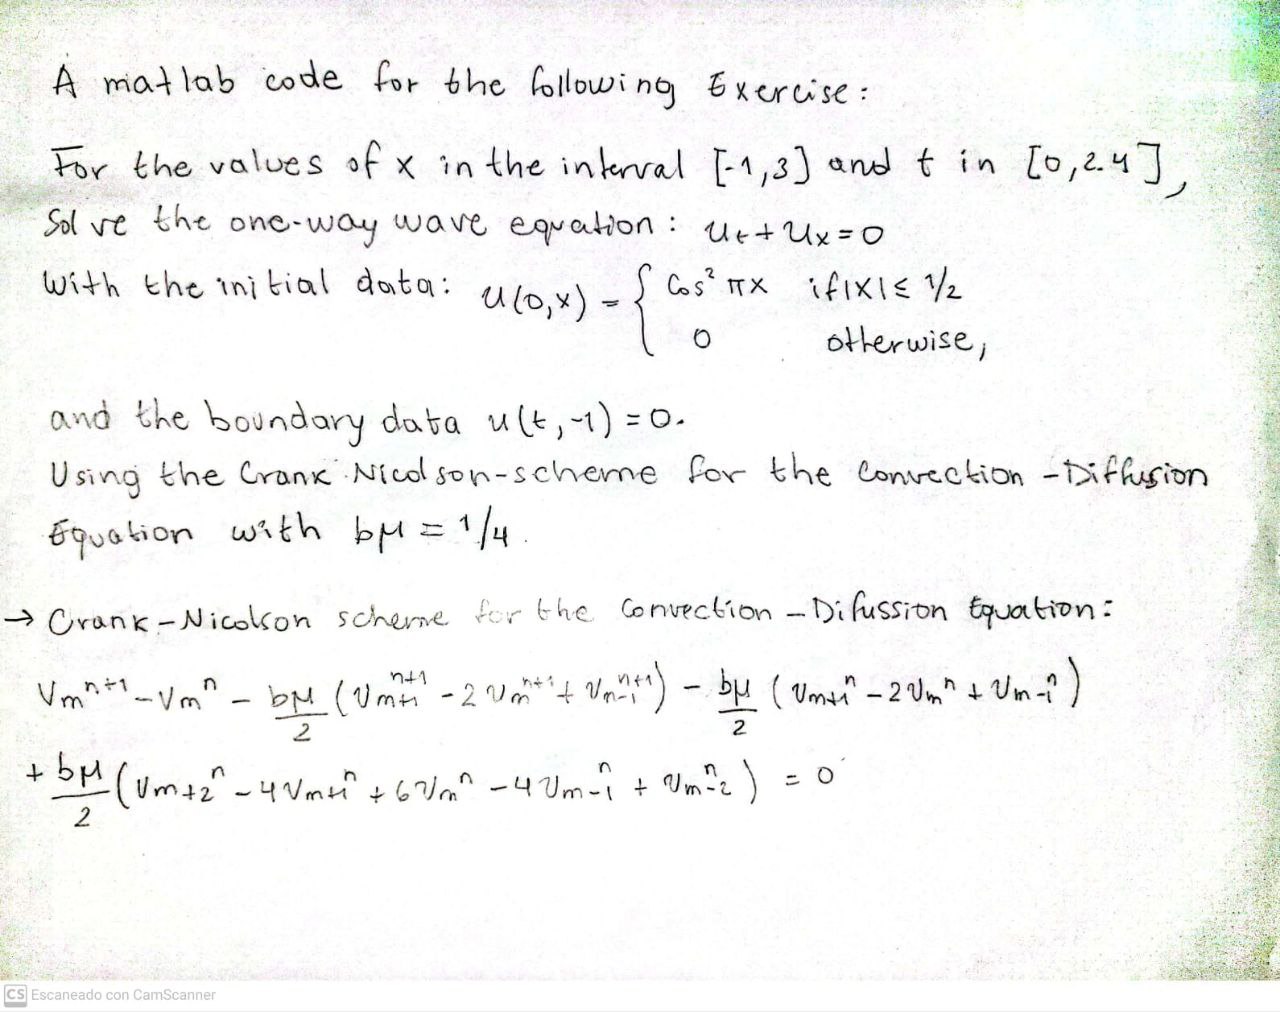 A matlab code for the following Exercise:
For the values of x in the interval [-1,3] and t in [0,2.4],
Solve the one-way wave equation: uₜ + uₓ = 0
With the initial data: u(0,x) = { Cos² πx if |x| ≤ 1/2
0 otherwise,
and the boundary data u(t,-1) = 0.
Using the Crank Nicolson-scheme for the Convection-Diffusion
Equation with bμ = 1/4.
→ Crank-Nicolson scheme for the Convection-Difussion Equation:
Vm^{n+1} - Vm^n - bμ/2 (Vm+1^{n+1} - 2Vm^{n+1} + Vm-1^{n+1}) - bμ/2 (Vm+1^n - 2Vm^n + Vm-1^n)
+ bμ/2 (Vm+2^n - 4Vm+1^n + 6Vm^n - 4Vm-1^n + Vm-2^n) = 0
CS Escaneado con CamScanner